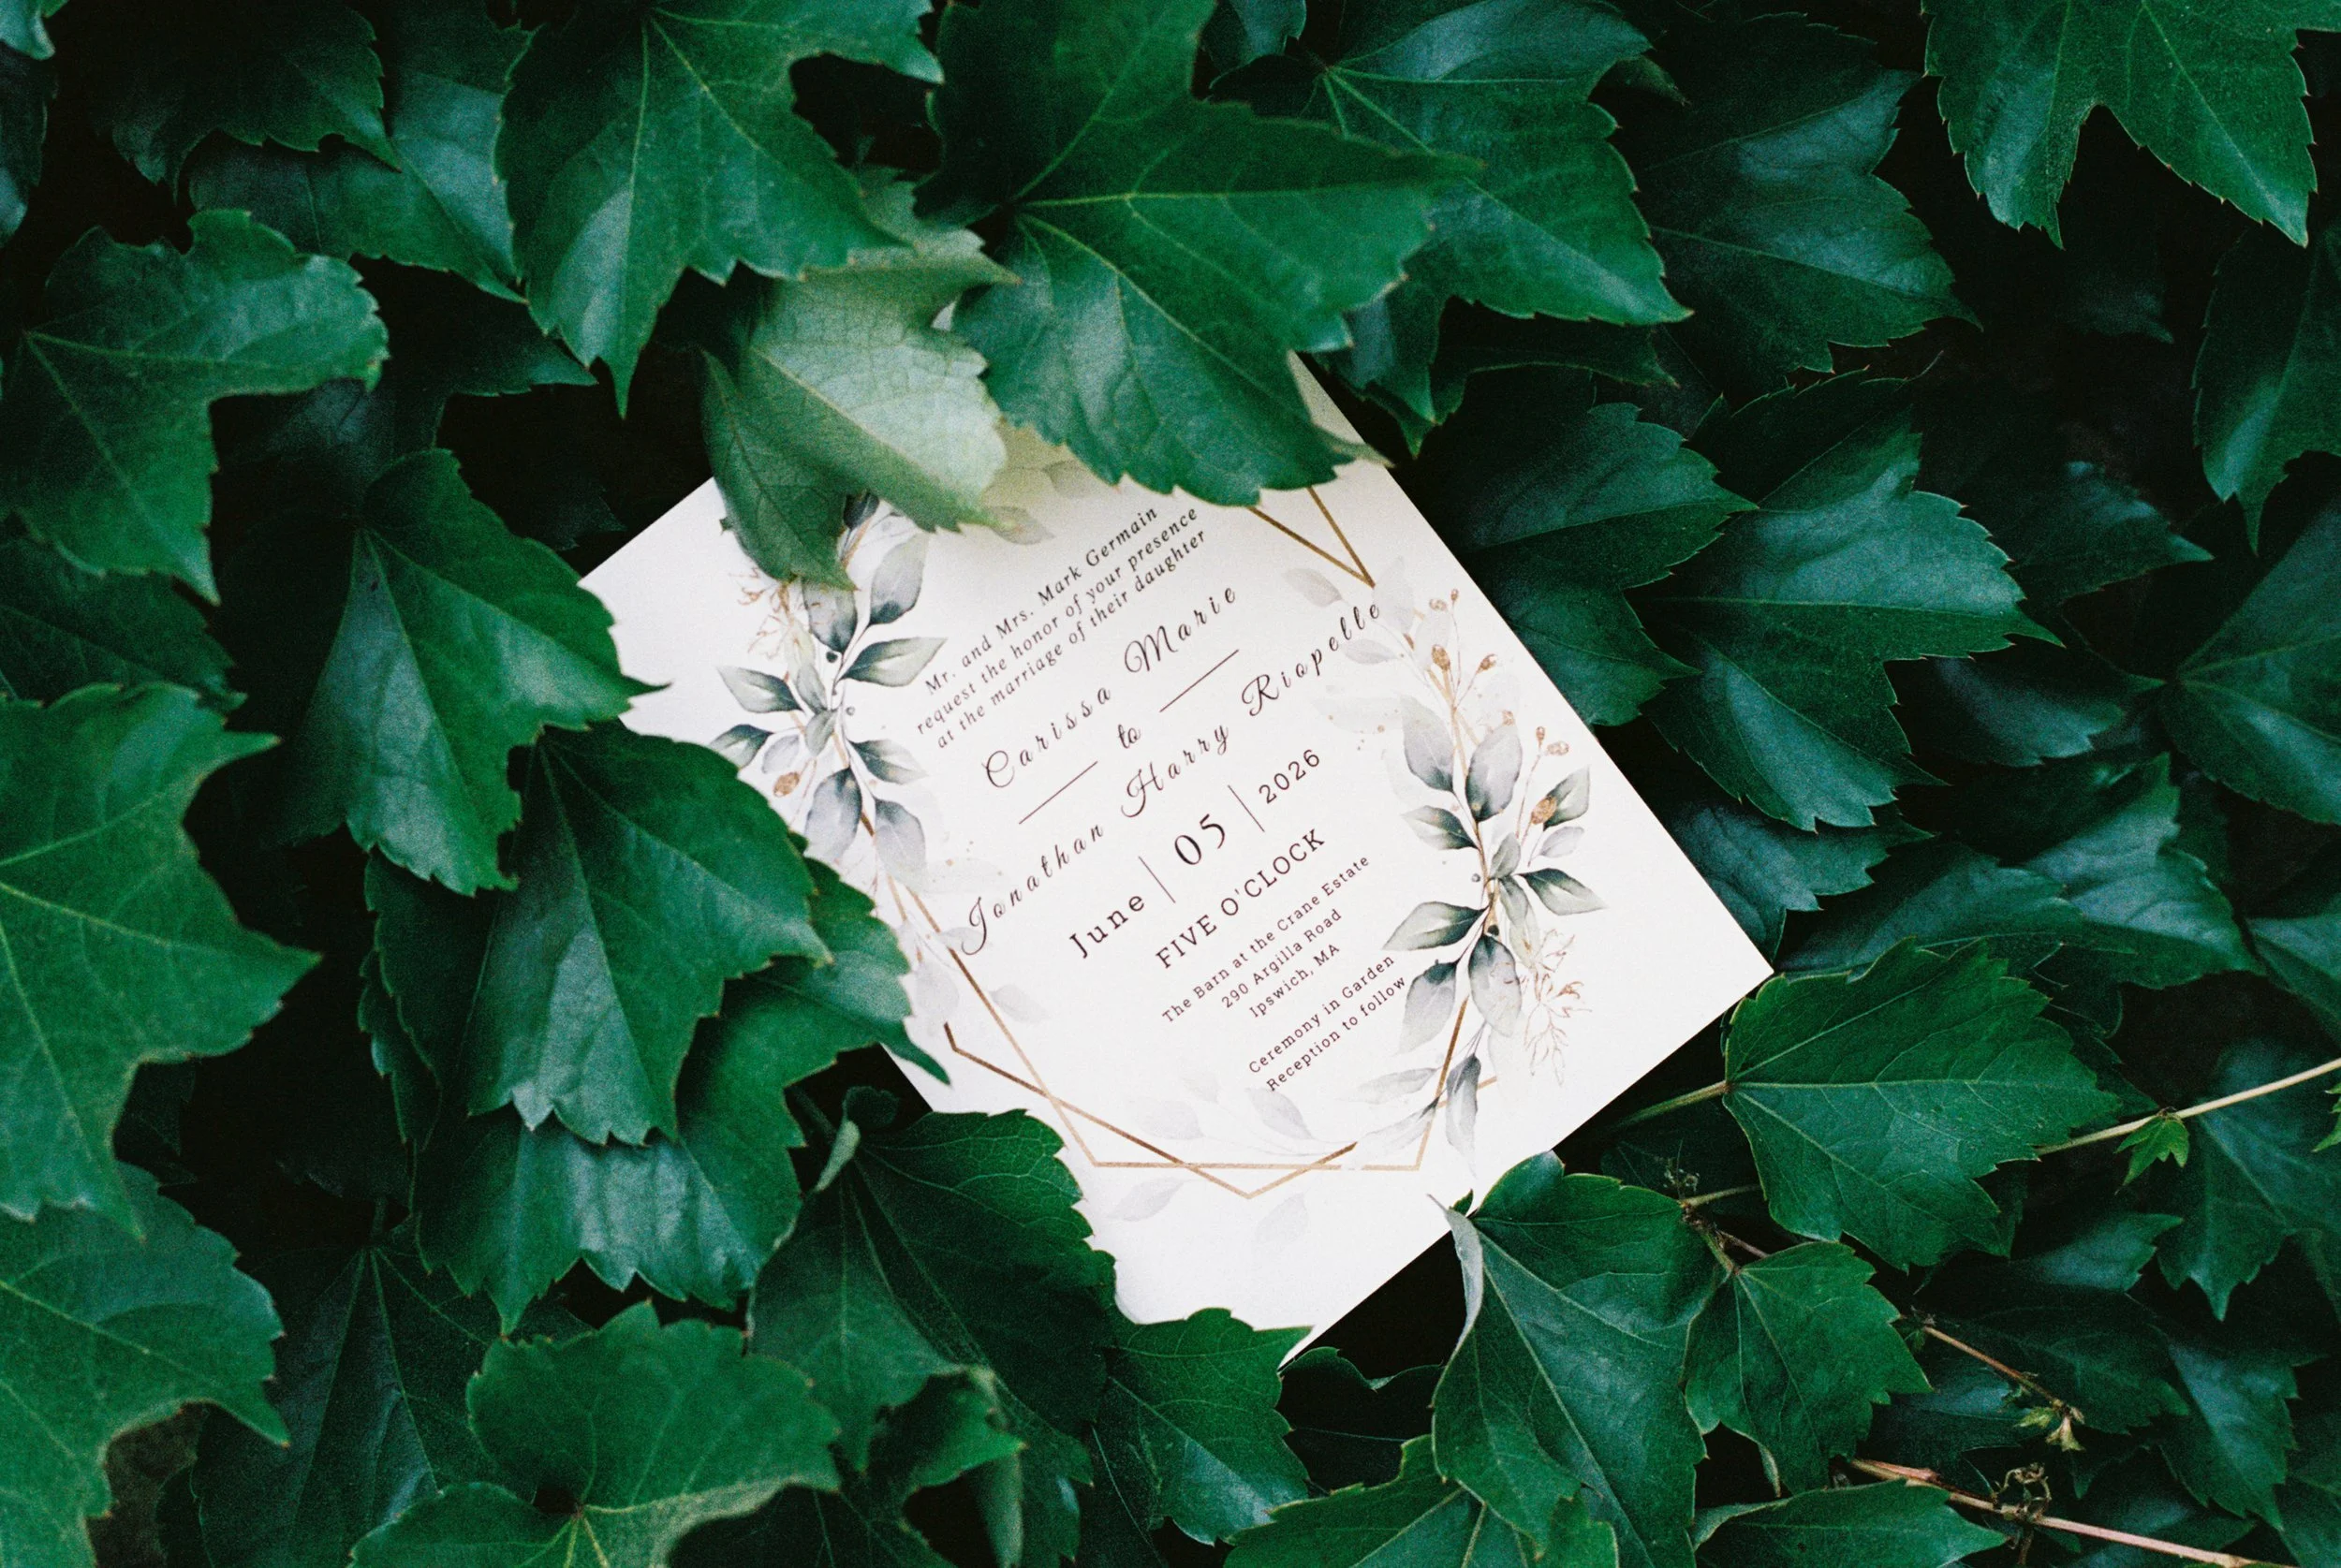 Mr. and Mrs. Mark Germain
request the honor of your presence
at the marriage of their daughter
Carissa Marie
to
Jonathan Harry Riopelle
June | 05 | 2026
FIVE O'CLOCK
The Barn at the Crane Estate
290 Argilla Road
Ipswich, MA
Ceremony in Garden
Reception to follow